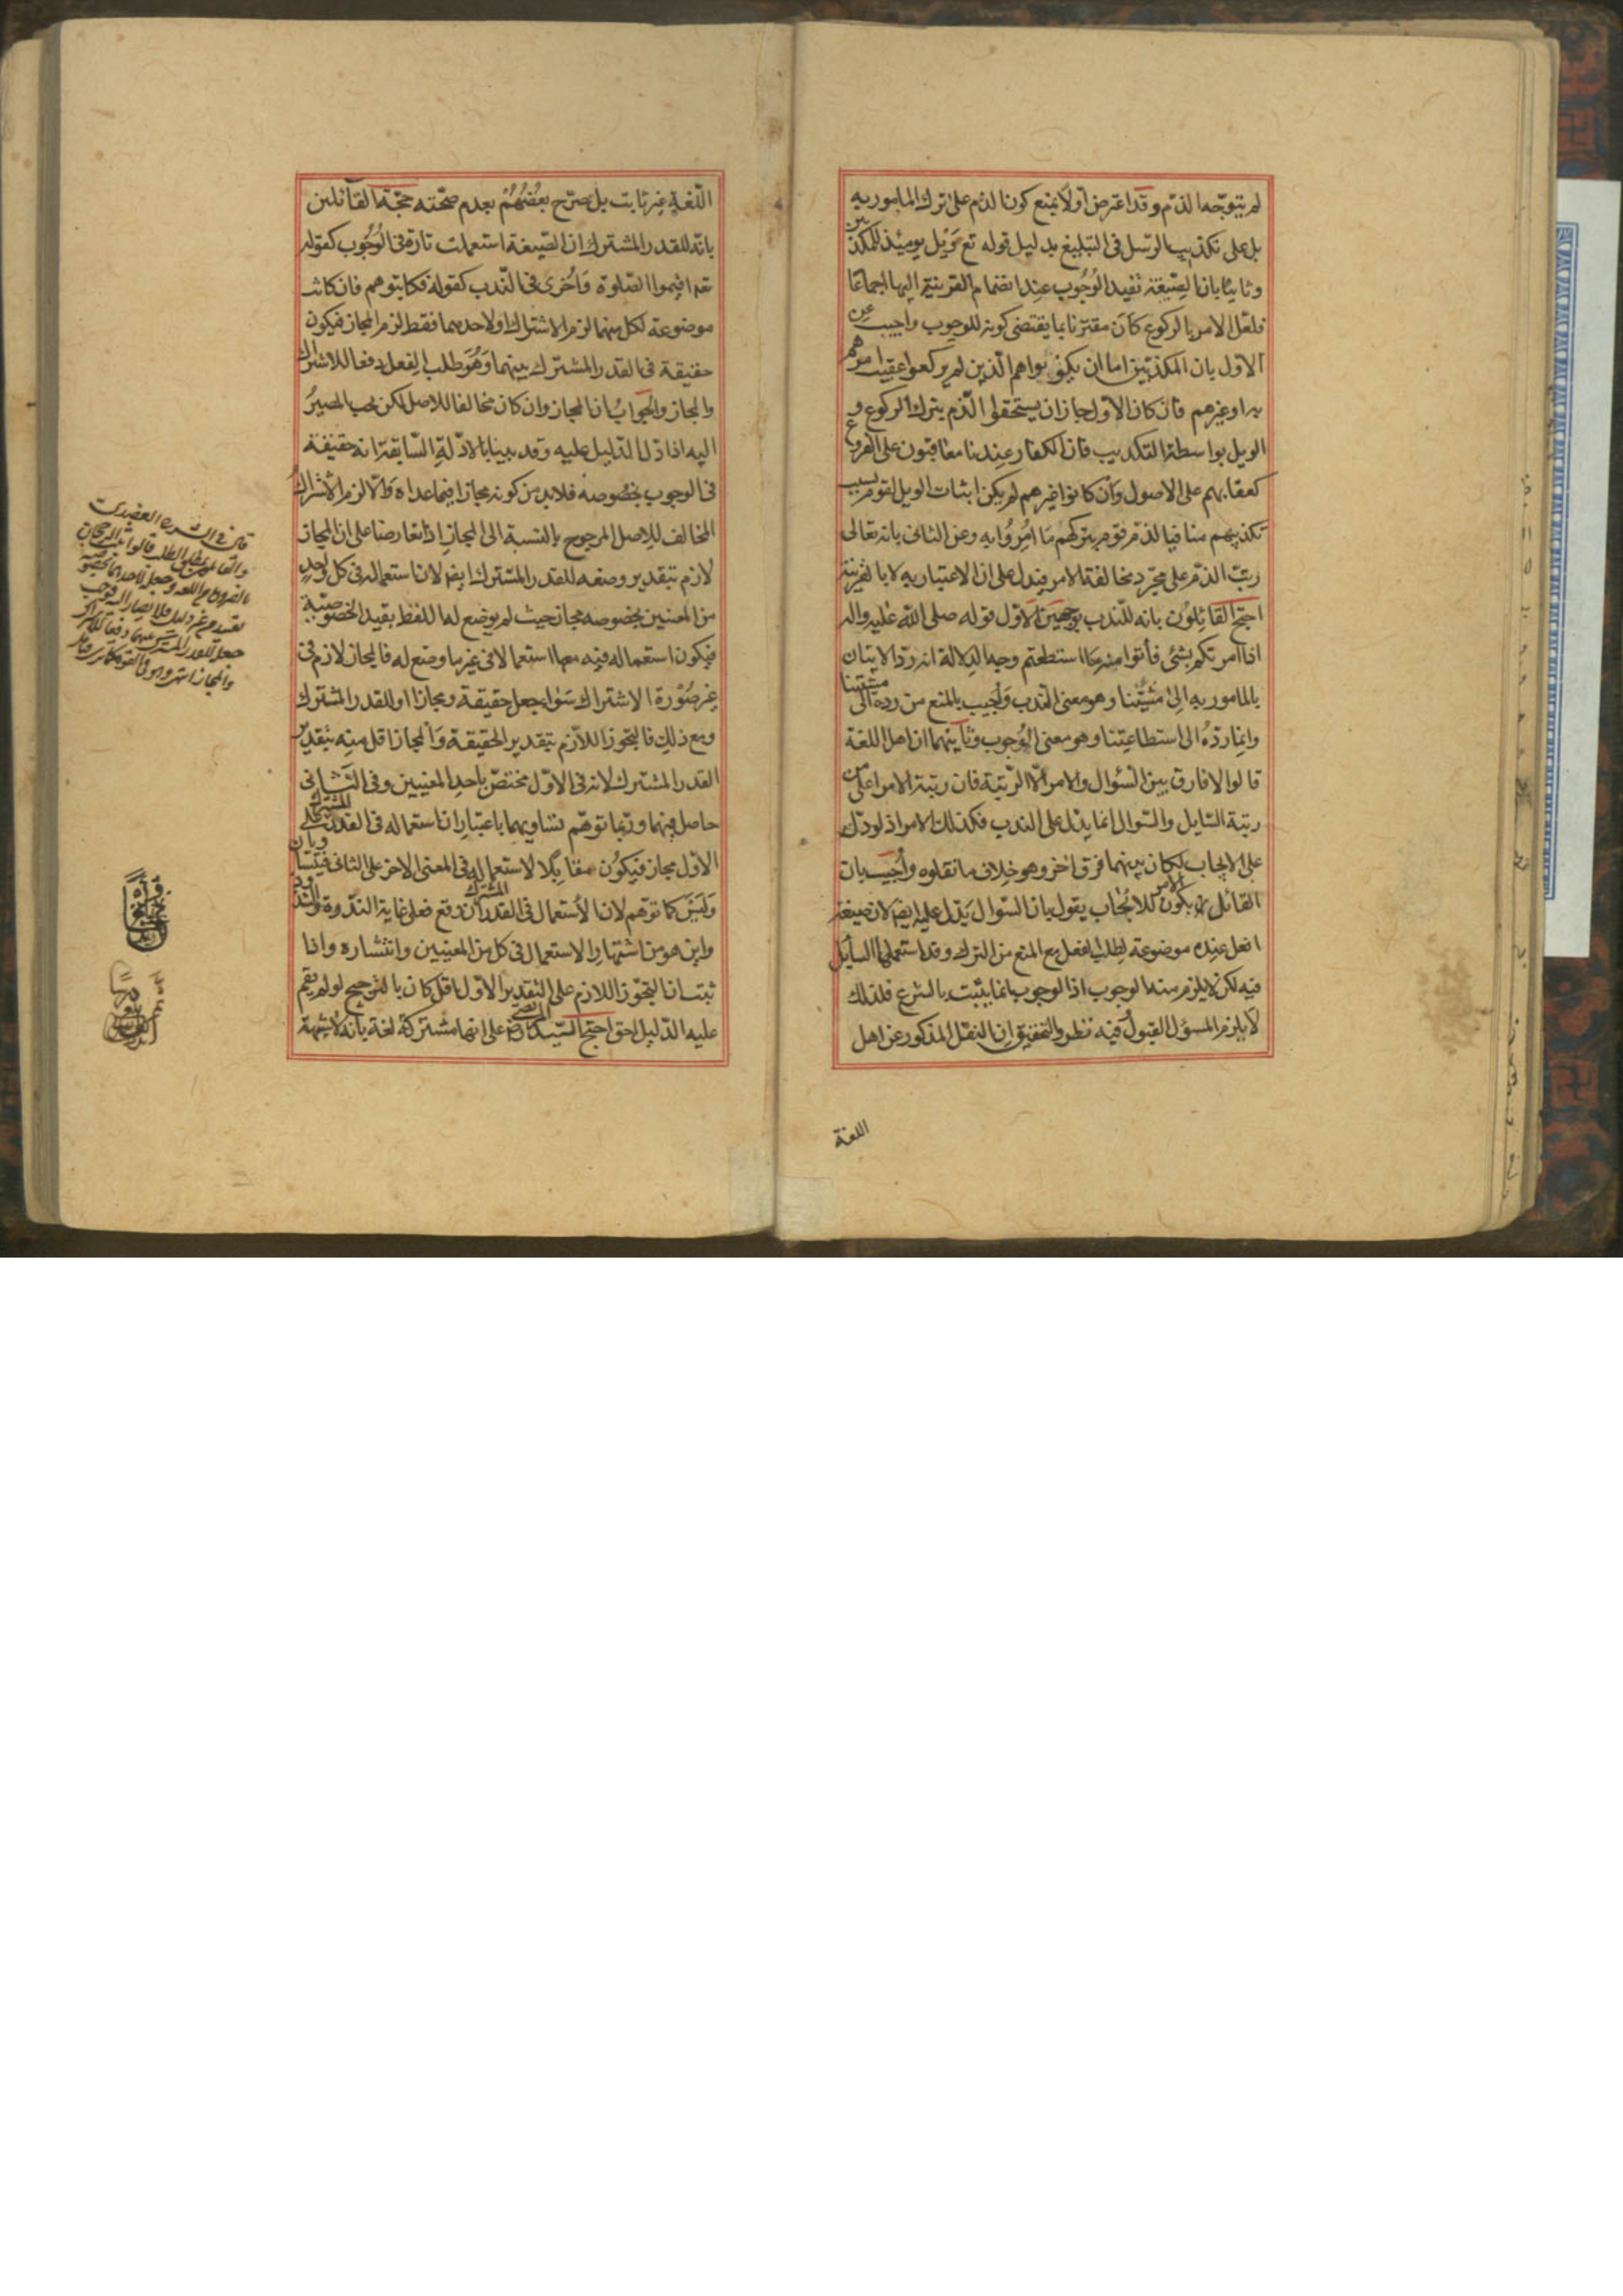 لم يتوجه الذم وقد اعترض اولا بمنع كون الذم على ترك المامور به
بل على تكذيب الرسل فى التبليغ بدليل قوله تع ويل يومئذ للمكذبين
وثانيا بان الصيغة تفيد الوجوب عند انضمام القرينة اليها اجماعا
فلعل الامر بالركوع كان مقترنا بما يقتضى كونه للوجوب واجيب عن
الاول بان المكذبين اما ان يكونوا هم الذين لم يركعوا عقيب امرهم
به او غيرهم فان كان الاول جاز ان يستحقوا الذم بترك الركوع و
الويل بواسطة التكذيب فان الكفار عندنا معاقبون على الفروع
كعقابهم على الاصول وان كانوا غيرهم لم يكن اثبات الويل لقوم بسبب
تكذيبهم منافيا لذم قوم بتركهم ما امروا به وعن الثانى بانه تعالى
رتب الذم على مجرد مخالفة الامر فيدل على ان الاعتبار به لا بالقرينة
احتج القائلون بانه للندب بوجهين الاول قوله صلى الله عليه واله
اذا امرتكم بشئ فأتوا منه ما استطعتم وجه الدلالة انه رد الاتيان
بالمامور به الى مشيتنا وهو معنى الندب واجيب بالمنع من رده الى مشيتنا
وانما رده الى استطاعتنا وهو معنى الوجوب وثانيهما ان اهل اللغة
قالوا لا فارق بين السؤال والامر الا الرتبة فان رتبة الامر اعلى من
رتبة السايل والسوال انما يدل على الندب فكذلك الامر اذ لو دل
على الايجاب لكان بينهما فرق اخر وهو خلاف ما نقلوه واجيب بان
القائل بكون الامر للايجاب يقول بان السوال يدل عليه ايضا لان صيغة
افعل عنده موضوعة لطلب الفعل مع المنع من الترك وقد استعملها السايل
فيه لكن لا يلزم منه الوجوب اذ الوجوب انما يثبت بالشرع فلذلك
لا يلزم المسؤل القبول فيه نظر والتحقيق ان النقل المذكور عن اهل
اللغة
اللغة غير ثابت بل صرح بعضهم بعدم صحته حجة القائلين
بانه للقدر المشترك ان الصيغة استعملت تارة فى الوجوب كقوله
تعه اقيموا الصلوة واخرى فى الندب كقوله فكاتبوهم فان كانت
موضوعة لكل منهما لزم الاشتراك او لاحدهما فقط لزم المجاز فيكون
حقيقة فى القدر المشترك بينهما وهو طلب الفعل دفعا للاشتراك
والمجاز والجواب ان المجاز وان كان مخالفا للاصل لكن يجب المصير
اليه اذا دل الدليل عليه وقد بينا بالادلة السابقة انه حقيقة
فى الوجوب بخصوصه فلابد من كونه مجازا فيما عداه والا لزم الاشتراك
المخالف للاصل المرجوح بالنسبة الى المجاز اذا تعارضا على ان المجاز
لازم بتقدير وضعه للقدر المشترك ايضا لان استعماله فى كل واحد
من المعنيين بخصوصه مجاز حيث لم يوضع له اللفظ بقيد الخصوصية
فيكون استعماله فيه معها استعمالا فى غير ما وضع له فالمجاز لازم فى
غير صورة الاشتراك سواء جعل حقيقة ومجازا او للقدر المشترك
ومع ذلك فالتجوز اللازم بتقدير الحقيقة والمجاز اقل منه بتقدير
القدر المشترك لانه فى الاول مختص باحد المعنيين وفى الثانى
حاصل فيهما وربما توهم تساويهما باعتبار ان استعماله فى القدر المشترك على
الاول مجاز فيكون مقابلا لاستعماله فى المعنى الاخر على الثانى فيتساويان
وليس كما توهم لان الاستعمال فى القدر المشترك ان وقع فعلى غاية الندرة والشذوذ
واين هو من اشتهار الاستعمال فى كل من المعنيين وانتشاره واذا
ثبت ان التجوز اللازم على التقدير الاول اقل كان بالترجيح لو لم يقم
عليه الدليل احق احتج السيد المرتضى على انها مشتركة لغة بانه لا شبهة